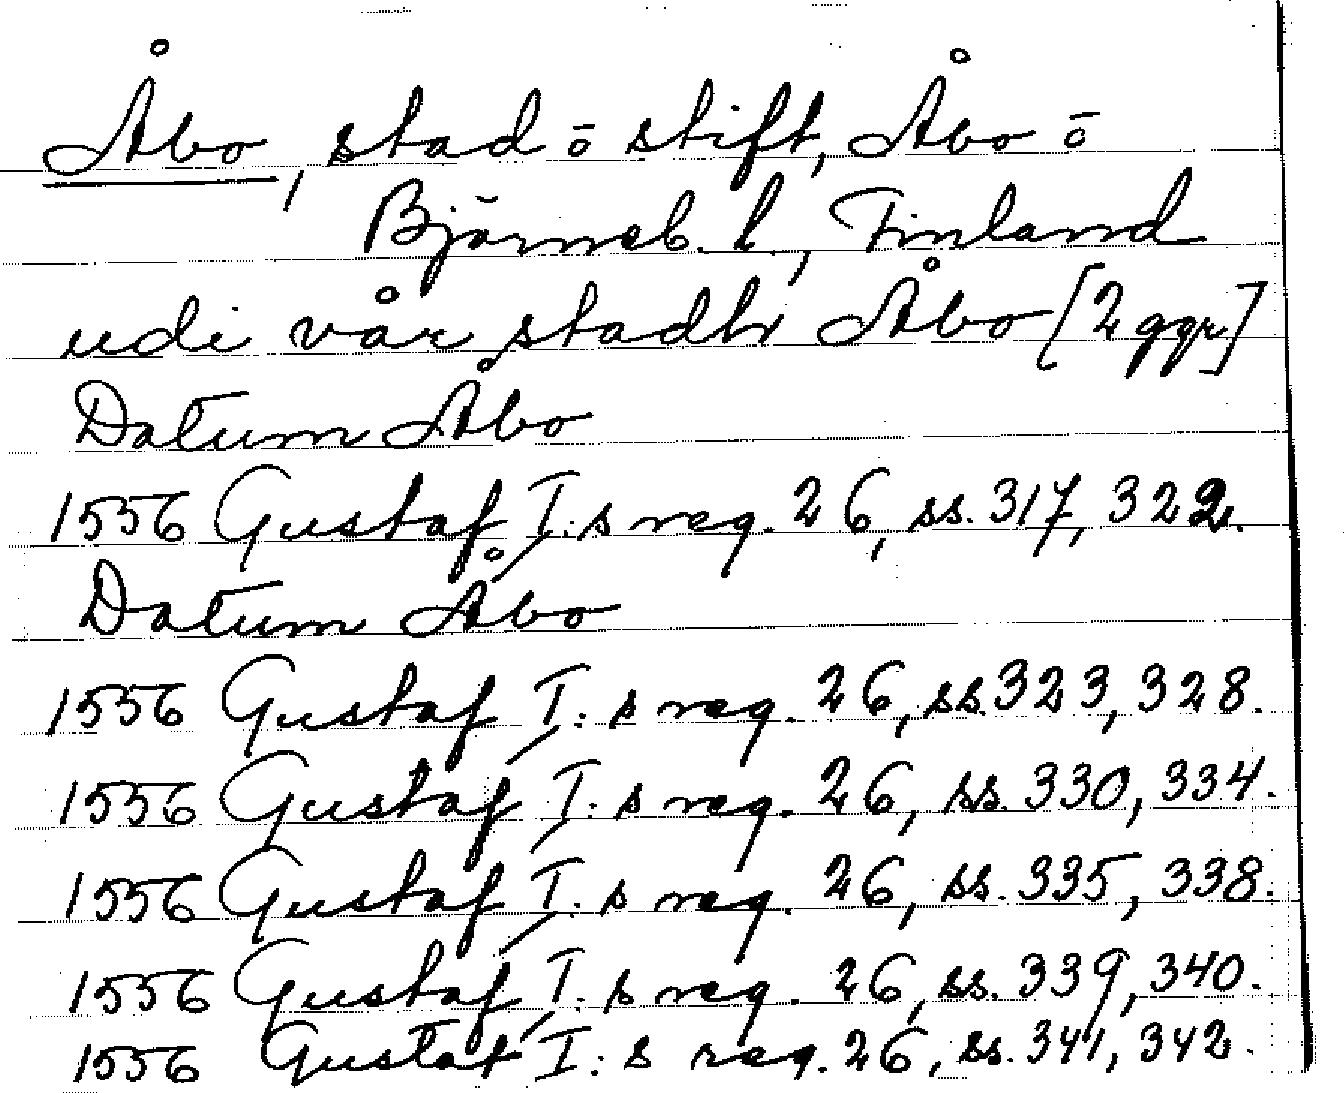 Åbo, stad ō stift, Åbo ō
Björneb. l., Finland
udi vår stadh Åbo [2 ggr]
Datum Åbo
1556 Gustaf I:s reg. 26, ss. 317, 322.
Datum Åbo
1556 Gustaf I:s reg. 26, ss. 323, 328.
1556 Gustaf I:s reg. 26, ss. 330, 334.
1556 Gustaf I:s reg. 26, ss. 335, 338.
1556 Gustaf I:s reg. 26, ss. 339, 340.
1556 Gustaf I:s reg. 26, ss. 341, 342.